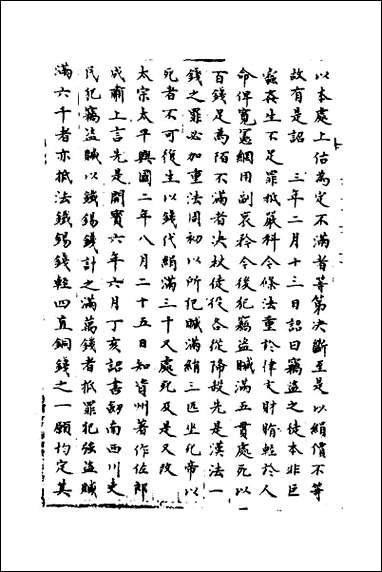 以本處上估為定不滿者等第決斷至是以絹價不等
故有是詔　三年二月十三日詔曰竊盜之徒本非巨
蠹姦生不足罪抵嚴科令條法重於律文財賄輕於人
命俾寬憲網用副哀矜今後犯竊盜贓滿五貫處死以
百錢足為陌不滿者決杖徒役各從降殺先是漢法一
錢之罪必加重法周初以所犯贓滿絹三匹坐死帝以
死者不可復生以錢代絹滿三千又處死及是又改
太宗太平興國二年八月二十五日知資州著作佐郎
戍廟上言先是開寶六年六月丁亥詔書劍南西川吏
民犯竊盜贓以鐵錫錢計之滿萬錢者抵罪犯強盜贓
滿六千者亦抵法鐵錫錢輕四直銅錢之一願均定其